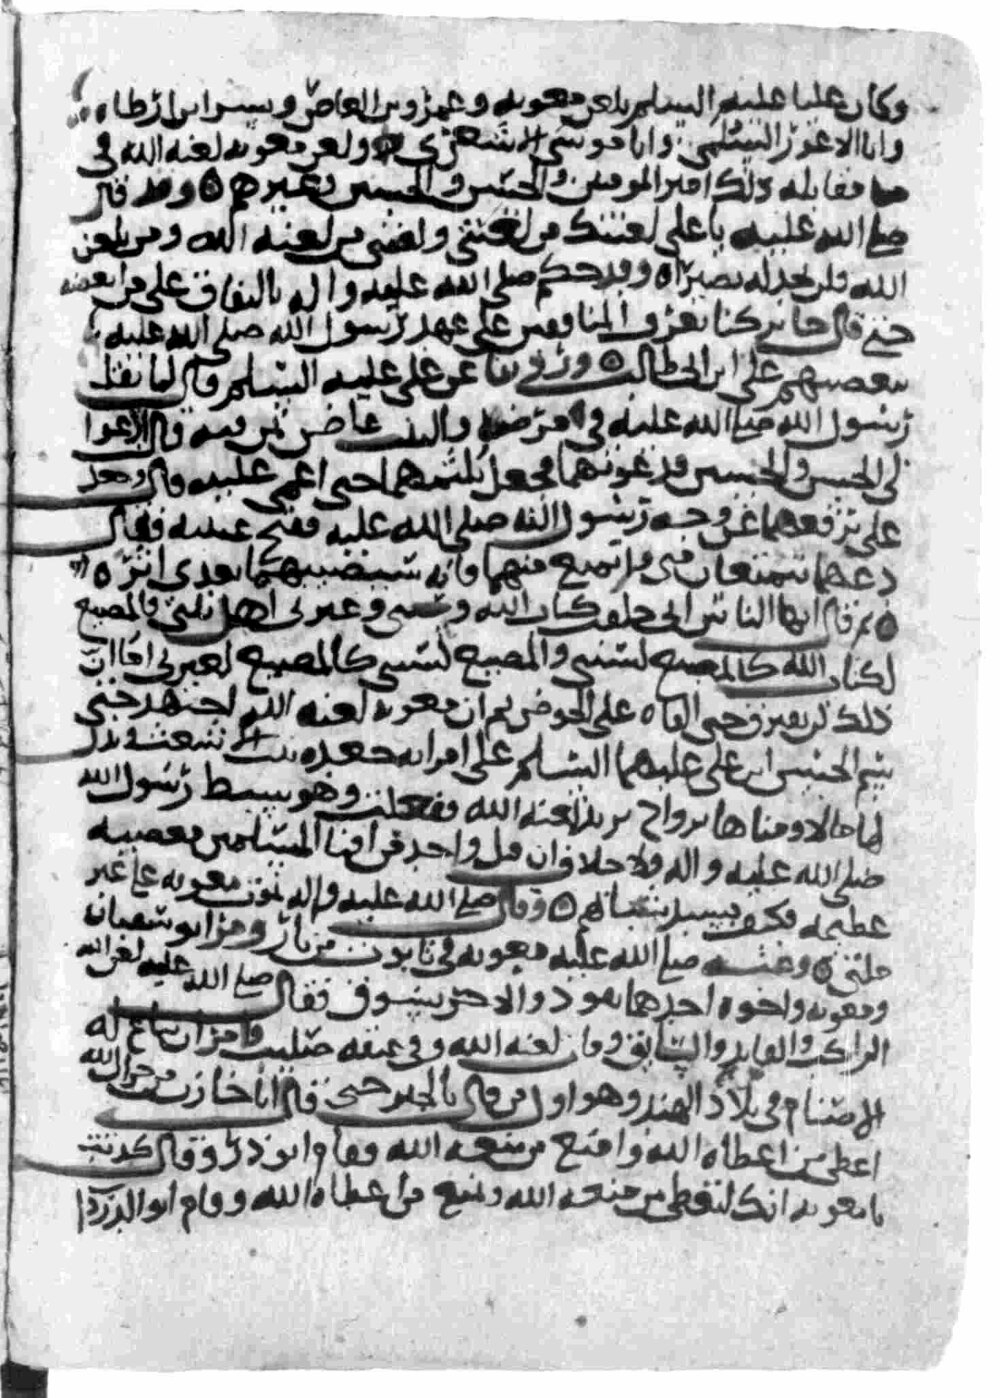 وكان عليا عليه السلم يلعن معويه وعمرو بن العاص وبسر ابن ارطاه
وابا الاعور السلمي وابا موسى الاشعري ولعن معويه لعنه الله في
مقابله ذلك امير المومنين والحسن والحسين وغيرهم وقد قال
صلى الله عليه يا علي لعنتك من لعنتي ولعنتي من لعنه الله ومن يلعن
الله فلن تجد له نصيرا وقد حكم صلى الله عليه واله بالنفاق على من ابغضه
حتى قال جابر كنا نعرف المنافقين على عهد رسول الله صلى الله عليه
ببغضهم علي ابن ابي طالب وروينا عن علي عليه السلم قال لما ثقل
رسول الله صلى الله عليه في مرضه والبيت غاص بمن فيه قال ادعوا
لي الحسن والحسين فدعوتهما فجعل يلثمهما حتى اغمي عليه قال وجعل
علي يرفعهما عن وجه رسول الله صلى الله عليه ففتح عينيه فقال
دعهما يتمتعان مني واتمتع منهما فانه سيصيبهما بعدي اثره
ثم قال ايها الناس اني خلفت كتاب الله وسنتي وعترتي اهل بيتي والمضيع
لكتاب الله كالمضيع لسنتي والمضيع لسنتي كالمضيع لعترتي اما ان
ذلك لن يفترق حتى القاه على الحوض ثم ان معويه لعنه الله اجتهد حتى
سم الحسن ابن علي عليهما السلم على امراته جعده بنت الاشعث وبذل
لها مالا ومناها بزواج يزيد لعنه الله ففعلت وهو سبط رسول الله
صلى الله عليه واله ولا خلاف ان قتل واحد من افنا المسلمين معصيه
عظيمه فكيف بسبط نبيناه وقال صلى الله عليه واله يموت معويه على غير
ملتي وعنه صلى الله عليه معويه في تابوت من نار ومر ابو سفيان
ومعويه واخوه احدهما يقود والاخر يسوق فقال صلى الله عليه لعن الله
الراكب والقايد والسايق ومات لعنه الله وفي عنقه صليب وامر ان تباع له
الاصنام في بلاد الهند وهو اول من قال بالجبر حتى قال انا خازن من خزان الله
اعطي من اعطاه الله وامنع من منعه الله فقام ابو ذر وقال كذبت
يا معويه انك لتعطي من منعه الله وتمنع من اعطاه الله وقام ابو الدردا